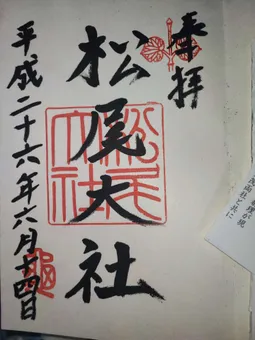 奉拝
松尾大社
松尾大社
平成二十六年六月十四日